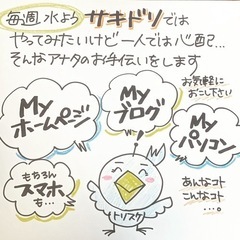 毎週水よう サキドリでは
やってみたいけど一人では心配…
そんなアナタのお手伝いをします
お気軽に
おこし下さい
My
ホームページ
My
ブログ
My
パソコン
もちろん
スマホ
も…
トリスケ
あんなコト
こんなコト
…。